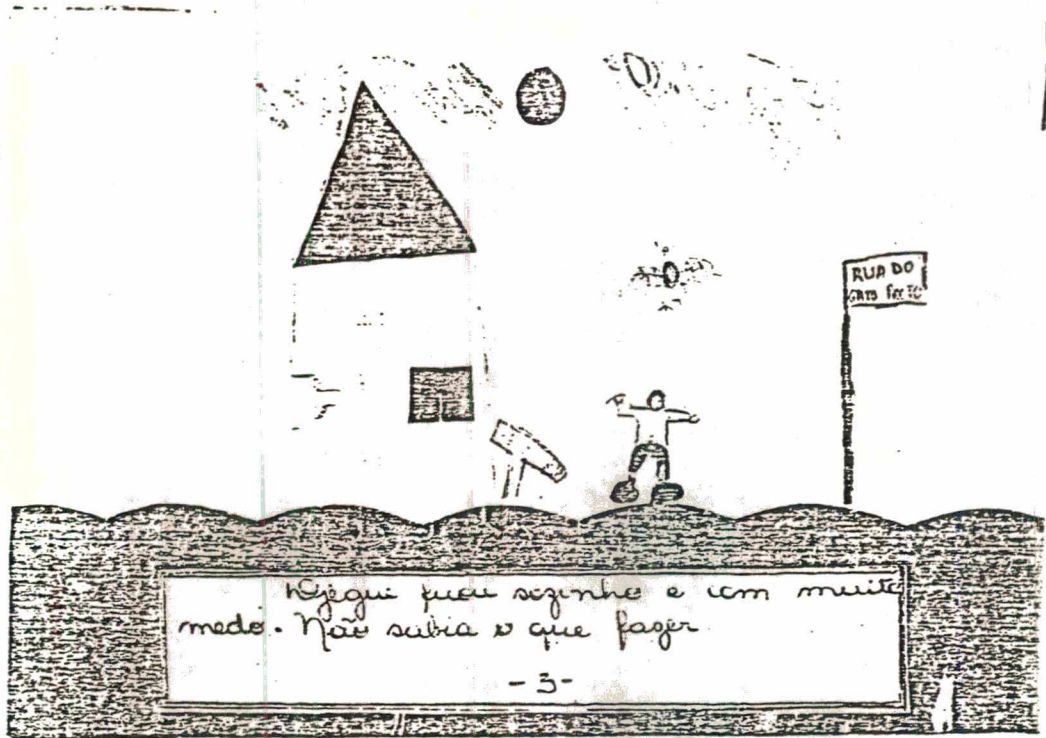 RUA DO
GATO PRETO
ficou sozinho e com muito
medo. Não sabia o que fazer
- 3 -